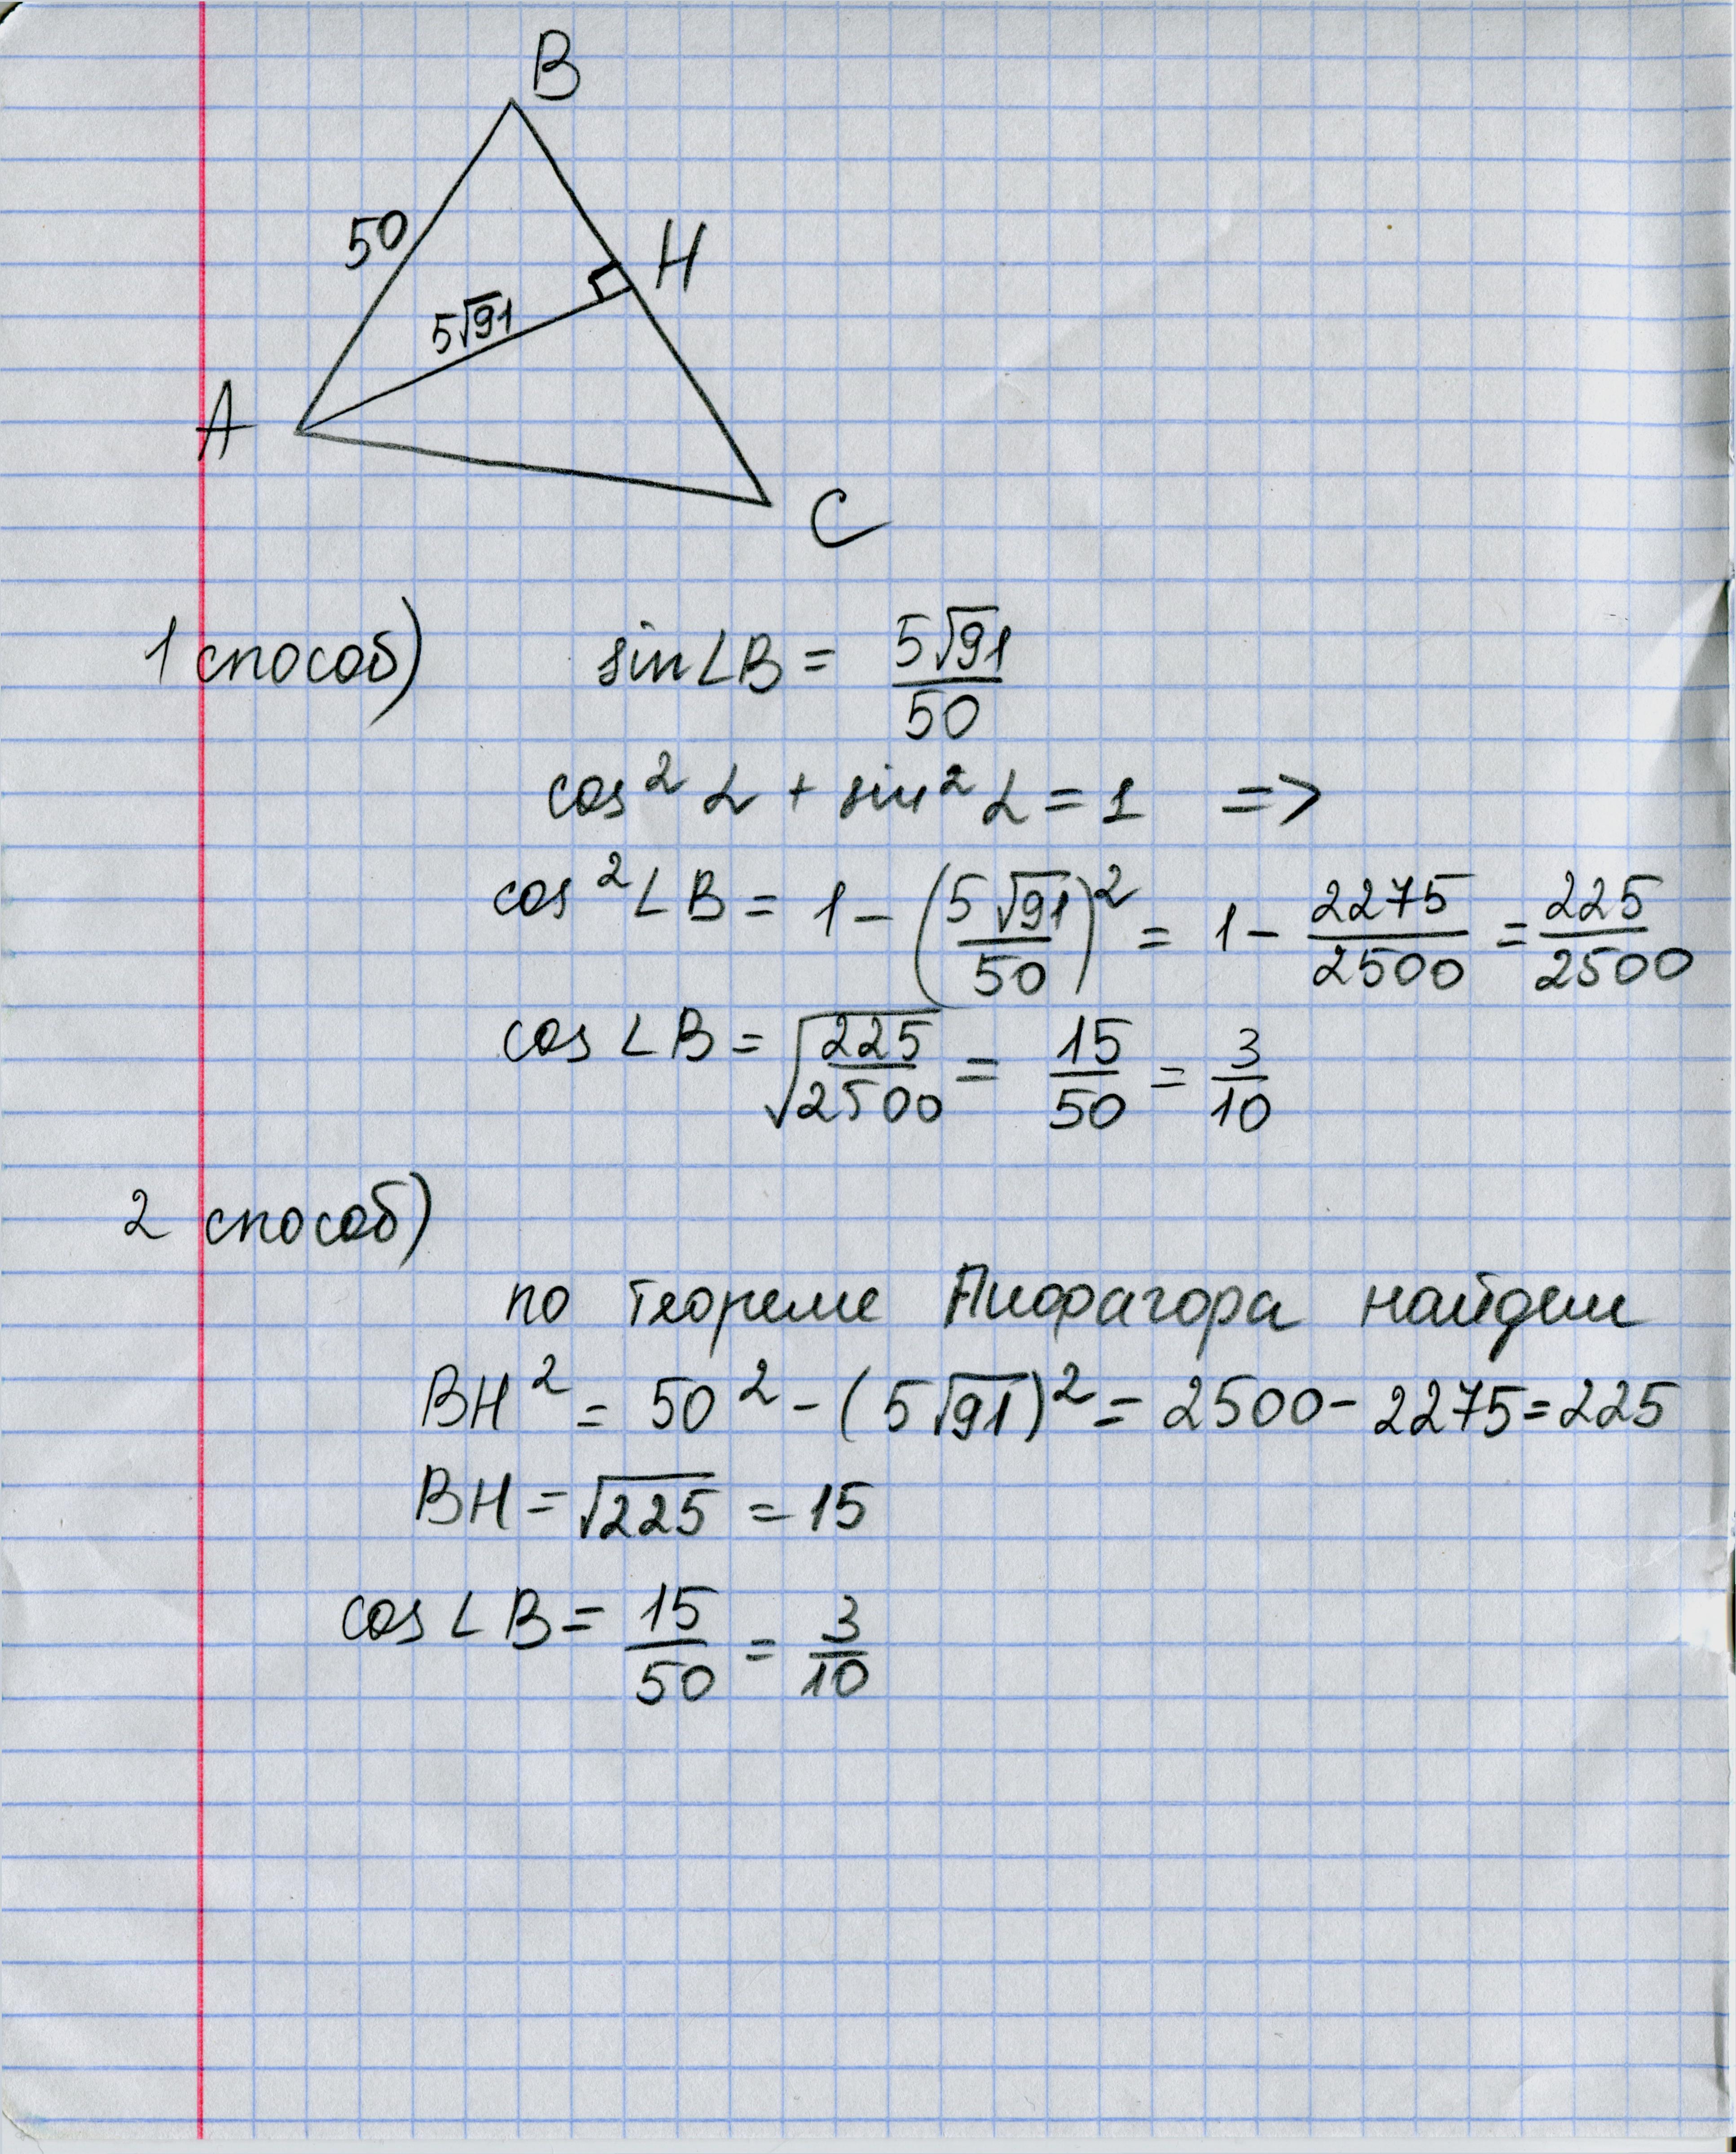 B
50
H
5√91
A
C
1 способ) sin∠B = 5√91/50
cos² α + sin² α = 1 =>
cos² ∠B = 1 - (5√91/50)² = 1 - 2275/2500 = 225/2500
cos ∠B = √(225/2500) = 15/50 = 3/10
2 способ)
по теореме Пифагора найдем
BH² = 50² - (5√91)² = 2500 - 2275 = 225
BH = √225 = 15
cos ∠B = 15/50 = 3/10